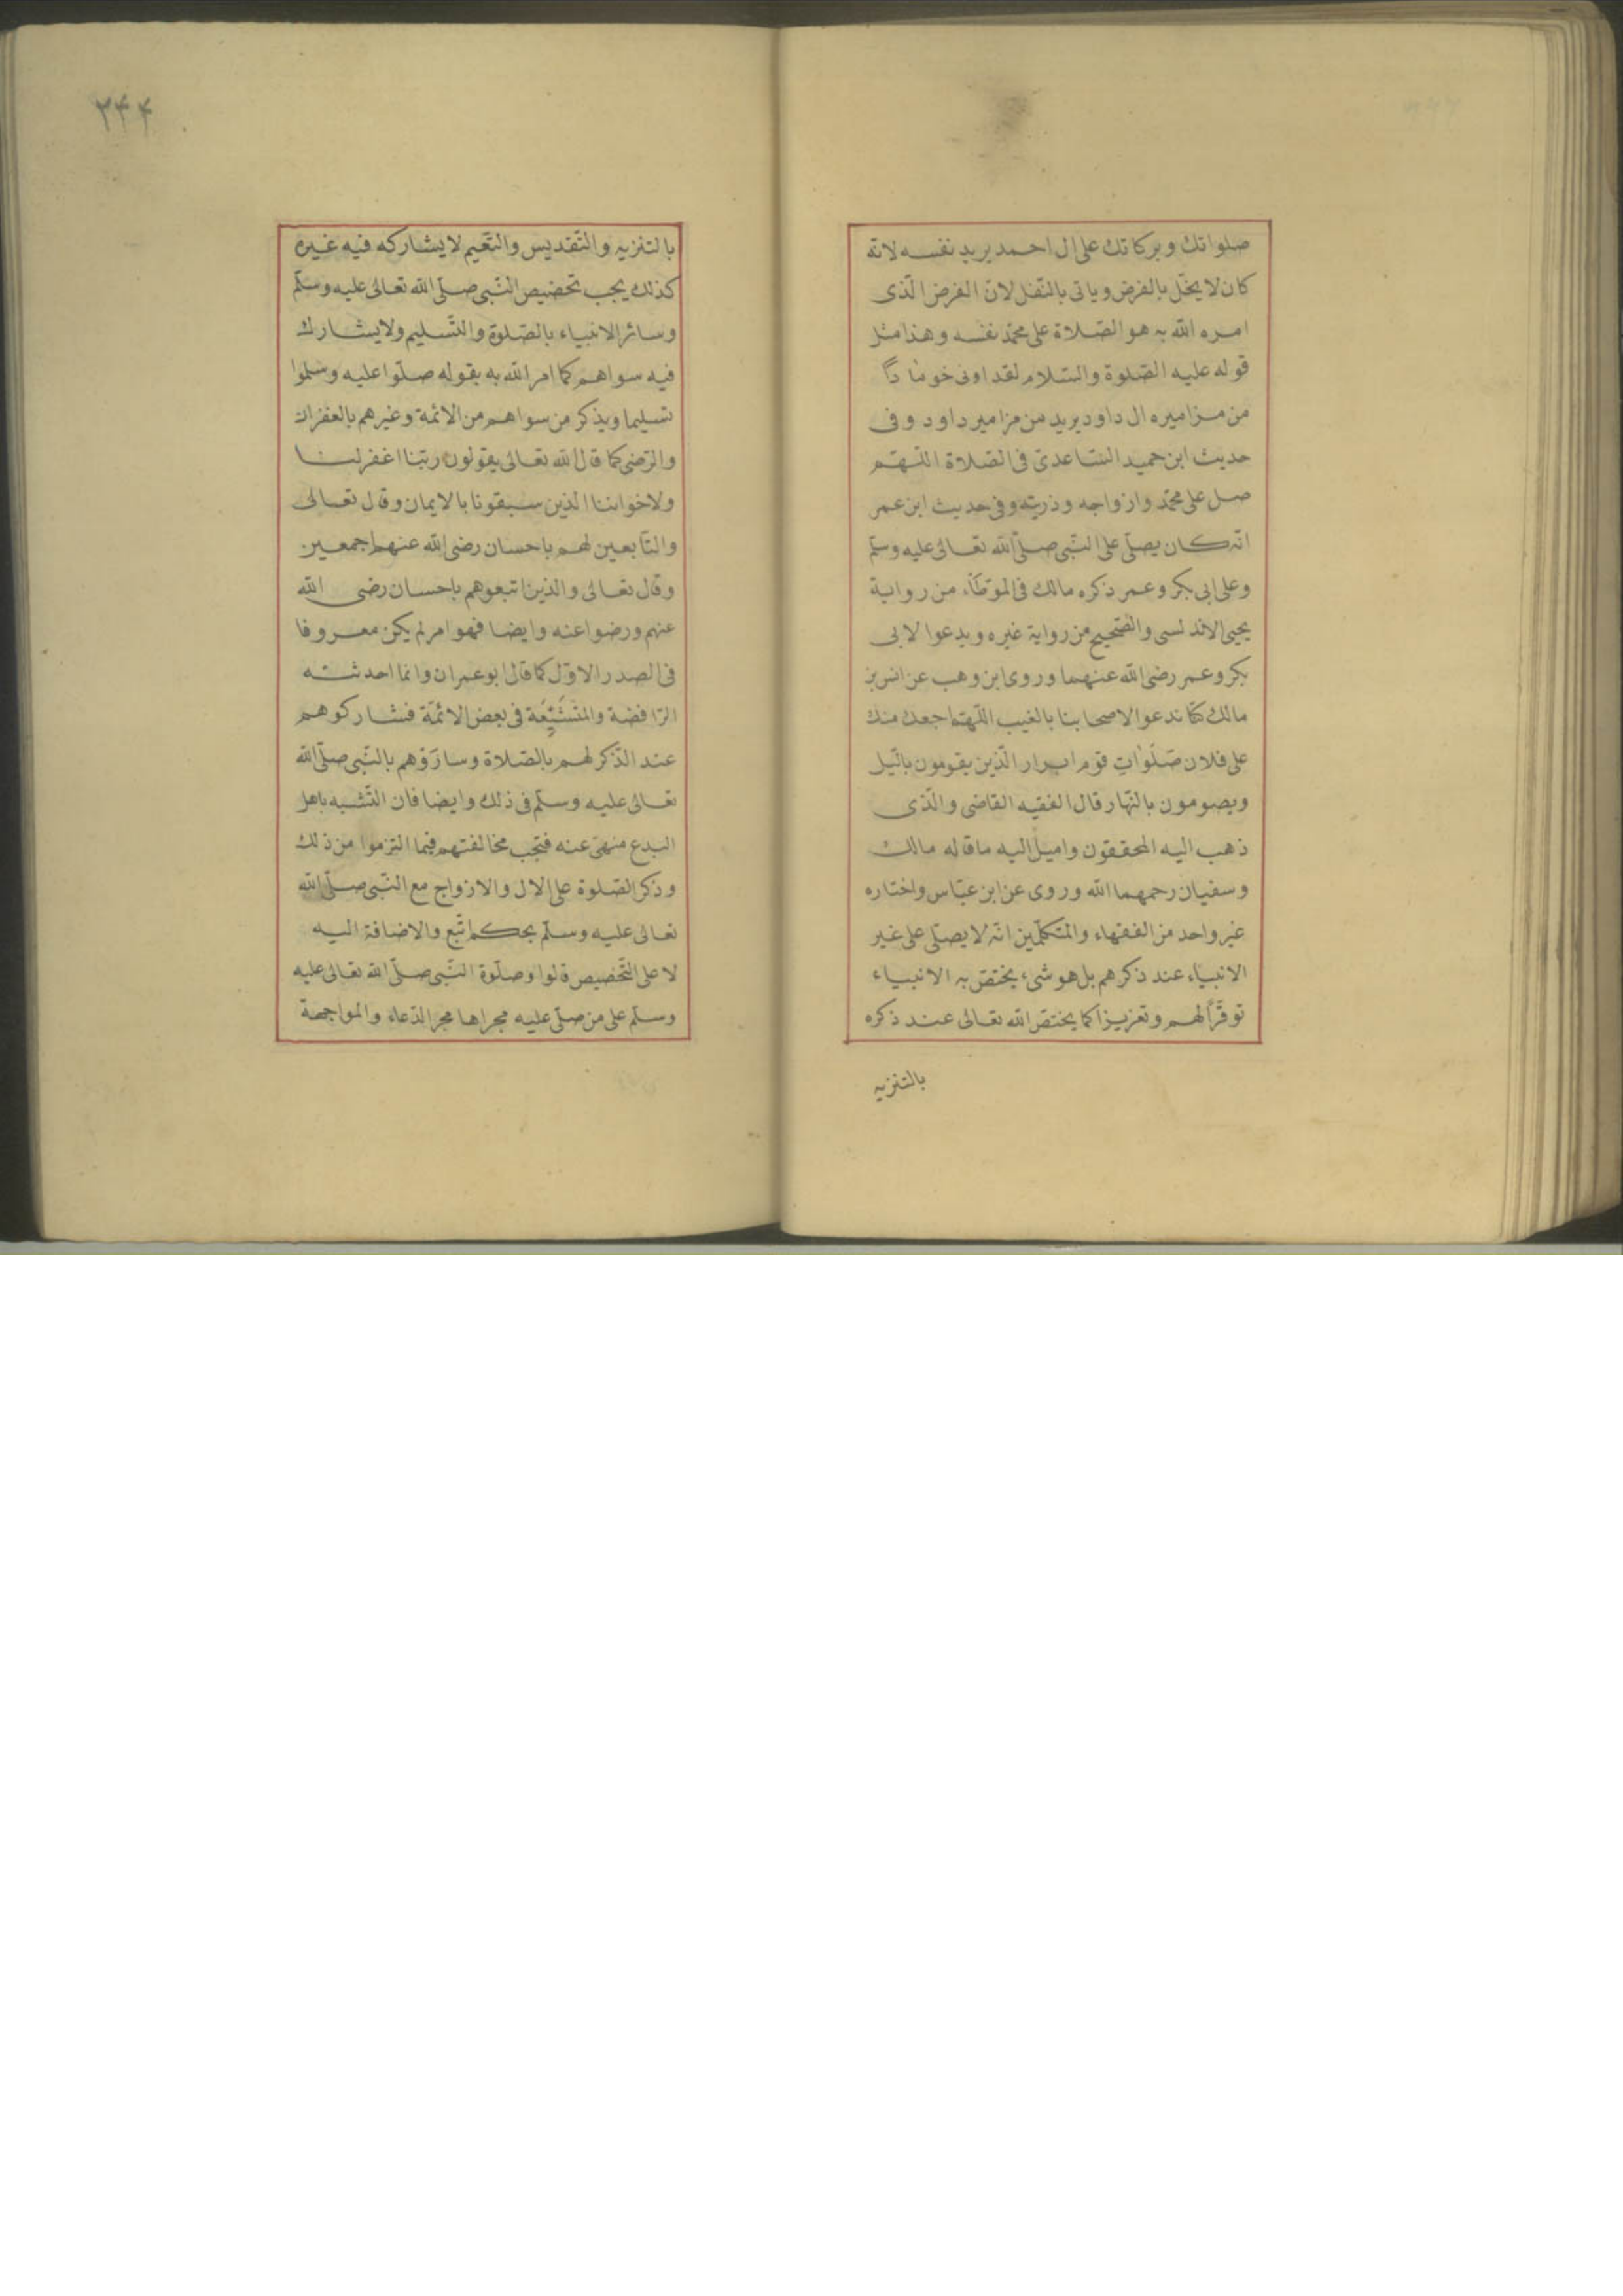 صلواتك وبركاتك على ال احمد يريد نفسه لانه
كان لا يخل بالفرض وياتى بالنفل لان الفرض الذى
امره الله به هو الصلاة على محمد نفسه وهذا مثل
قوله عليه الصلوة والسلام لقد اوتى
من مزاميره ال داود يريد من مزامير داود وفى
حديث ابن حميد الساعدى فى الصلاة اللهم
صل على محمد وازواجه وذريته وفى حديث ابن عمر
انه كان يصلى على النبى صلى الله تعالى عليه وسلم
وعلى ابى بكر وعمر ذكره مالك فى الموطأ، من رواية
يحيى الاندلسى والصحيح من رواية غيره ويدعوا لابى
بكر وعمر رضى الله عنهما وروى ابن وهب عن انس بن
مالك كنا ندعو الاصحابنا بالغيب اللهم اجعل منك
على فلان صلوات قوم ابرار الذين يقومون بالليل
ويصومون بالنهار قال الفقيه القاضى والذى
ذهب اليه المحققون واميل اليه ماقاله مالك
وسفيان رحمهما الله وروى عن ابن عباس واختاره
غير واحد من الفقهاء والمتكلمين انه لا يصلى على غير
الانبياء عند ذكرهم بل هو شىء يختص به الانبياء
توقرا لهم وتعزيزا كما يختص الله تعالى عند ذكره
بالتنزيه
٢٤٤
بالتنزيه والتقديس والتعيم لا يشاركه فيه غيره
كذلك يجب تخضيص النبى صلى الله تعالى عليه وسلم
وسائر الانبياء بالصلوة والتسليم ولا يشارك
فيه سواهم كما امر الله به بقوله صلوا عليه وسلموا
تسليما ويذكر من سواهم من الائمة وغيرهم بالغفران
والرضى كما قال الله تعالى يقولون ربنا اغفر لنا
ولاخواننا الذين سبقونا بالايمان وقال تعالى
والتابعين لهم باحسان رضى الله عنهم اجمعين
وقال تعالى والذين اتبعوهم باحسان رضى الله
عنهم ورضوا عنه وايضا فهو امر لم يكن معروفا
فى الصدر الاول كما قال ابو عمران وانما احدثته
الرافضة والمتشيعة فى بعض الائمة فشاركوهم
عند الذكر لهم بالصلاة وساروهم بالنبى صلى الله
تعالى عليه وسلم فى ذلك وايضا فان التشبه باهل
البدع منهى عنه فتجب مخالفتهم فيما التزموا من ذلك
وذكر الصلوة على الال والازواج مع النبى صلى الله
تعالى عليه وسلم بحكم اتبع والاضافة اليه
لا على التخصيص قالوا وصلوة النبى صلى الله تعالى عليه
وسلم على من صلى عليه مجراها مجر الدعاء والمواجهة